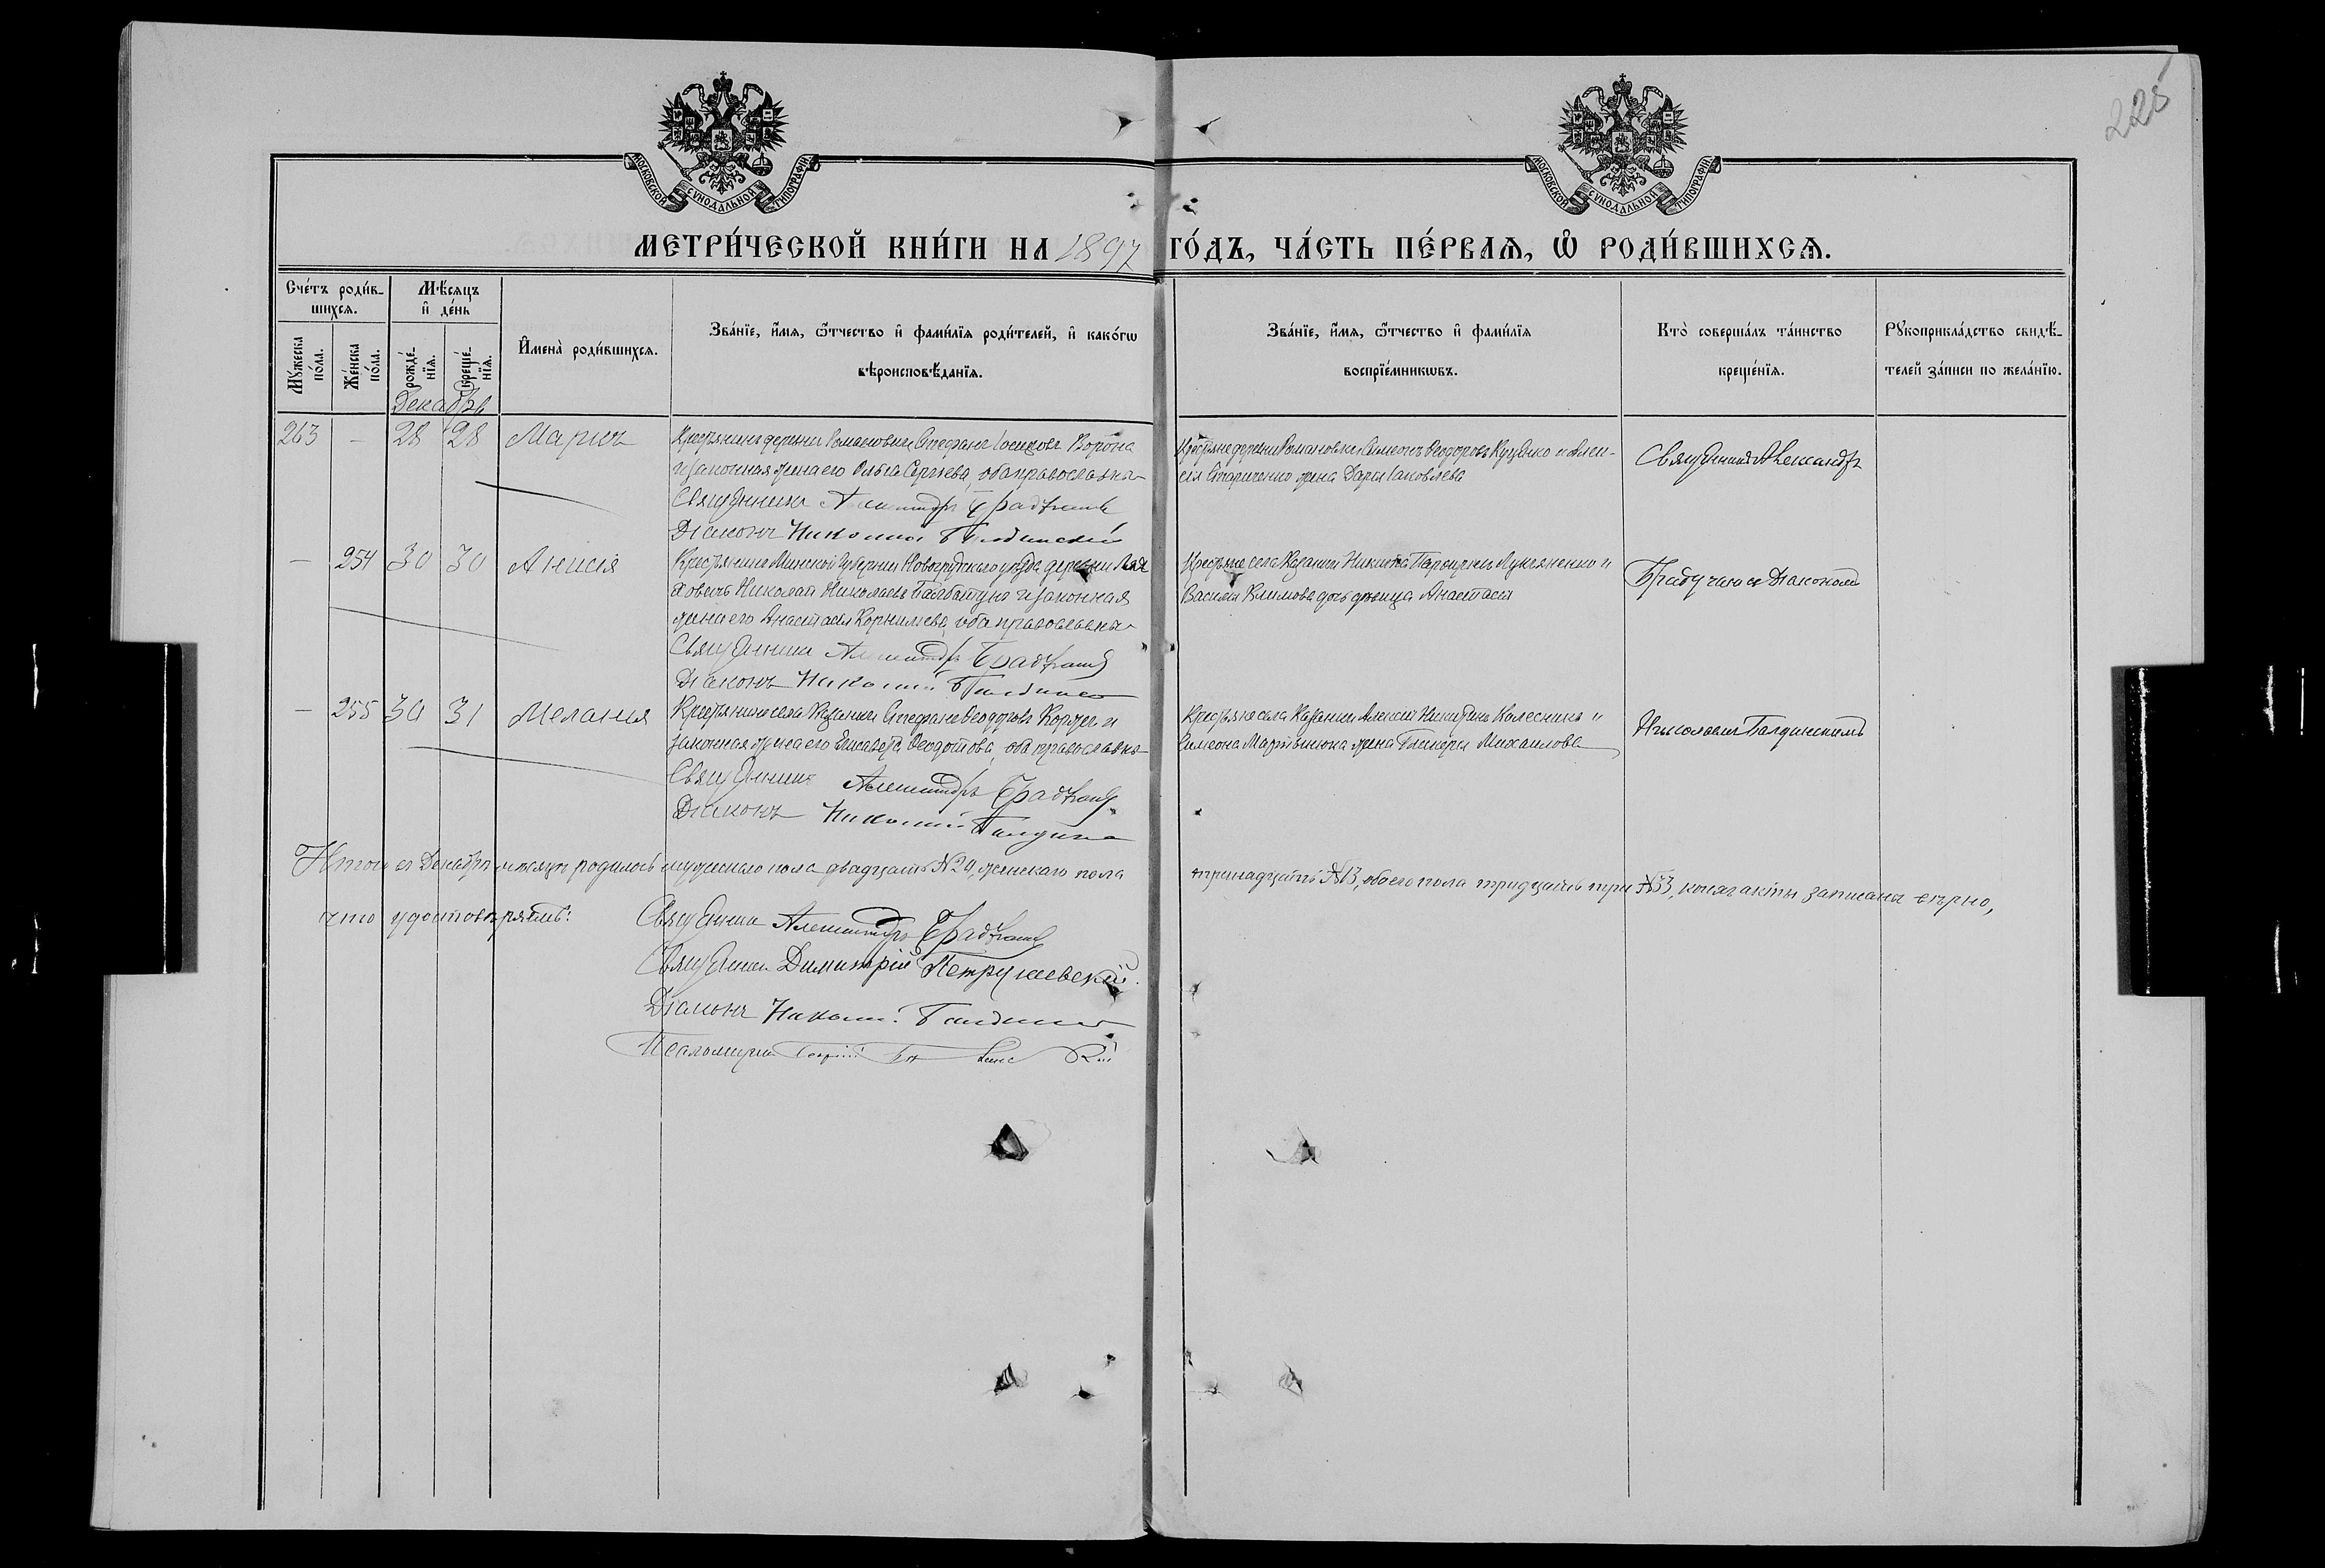 228
МОСКОВСКОЙ СУНОДАЛЬНОЙ ТИПОГРАФІИ
МОСКОВСКОЙ СУНОДАЛЬНОЙ ТИПОГРАФІИ
МЕТРИ́ЧЕСКОЙ КНИ́ГИ НА 1897 ГО́ДЪ, ЧА́СТЬ ПЕ́РВАѦ, Ѽ РОДИ́ВШИХСѦ.
Сче́тъ роди́в-
шихсѧ.
Мѣ́сяцъ
и҆ де́нь
Мꙋ́жеска по́ла.
Же́нска по́ла.
рожде́-нїѧ.
креще́-нїѧ.
И҆мена̀ роди́вшихсѧ.
Зва́нїе, и҆́мѧ, ѻ҆́тчество и҆ фами́лїѧ роди́телей, и҆ како́гѡ
вѣроисповѣ́данїѧ.
Зва́нїе, и҆́мѧ, ѻ҆́тчество и҆ фами́лїѧ
воспрїе́мникѡвъ.
Кто̀ соверша́лъ та́инство
креще́нїѧ.
Рꙋкоприкла́дство свидѣ́-
телей за́писи по жела́нїю.
Декабрь
263 — 28 28 Марія
Крестьянинъ деревни Романовки Стефанъ Іосифовъ Ворона
и законная жена его Ольга Сергѣева, оба православны
Священникъ Александръ Брадучанъ
Діаконъ Николай Балдинскій
Крестьяне деревни Романовки Симеонъ Ѳеодоровъ Куценко и Алек-
сія Стариченко жена Дарія Іаковлева
Священник Александръ
— 254 30 30 Анисія
Крестьянинъ Минской Губерніи Новогрудскаго уѣзда деревни
Николай Николаевъ и законная
жена его Анастасія Корнилиева, оба православны
Священникъ Александръ Брадучанъ
Діаконъ Николай Балдинскій
Крестьяне села Казанки Никита Лукьяненко и
Василія Климова дочь дѣвица Анастасія
съ Діакономъ
— 255 30 31 Меланія
Крестьянинъ села Казанки Стефанъ Ѳеодоровъ и
законная жена его Елисавета Ѳеодотова, оба православны
Священникъ Александръ Брадучанъ
Діаконъ Николай Балдинскій
Крестьяне села Казанки Алексій Никитинъ Колесникъ и
Симеона Мартынюка жена Гликерія Михаилова
Николаемъ Балдинскимъ
Итого въ Декабрѣ мѣсяцѣ родилось мужескаго пола двадцать №20, женскаго пола тринадцать №13, обоего пола тридцать три №33, записаны вѣрно,
что удостовѣряемъ:
Священникъ Александръ Брадучанъ
Священникъ Димитрій Петрушевскій.
Діаконъ Николай Балдинскій
Псаломщикъ